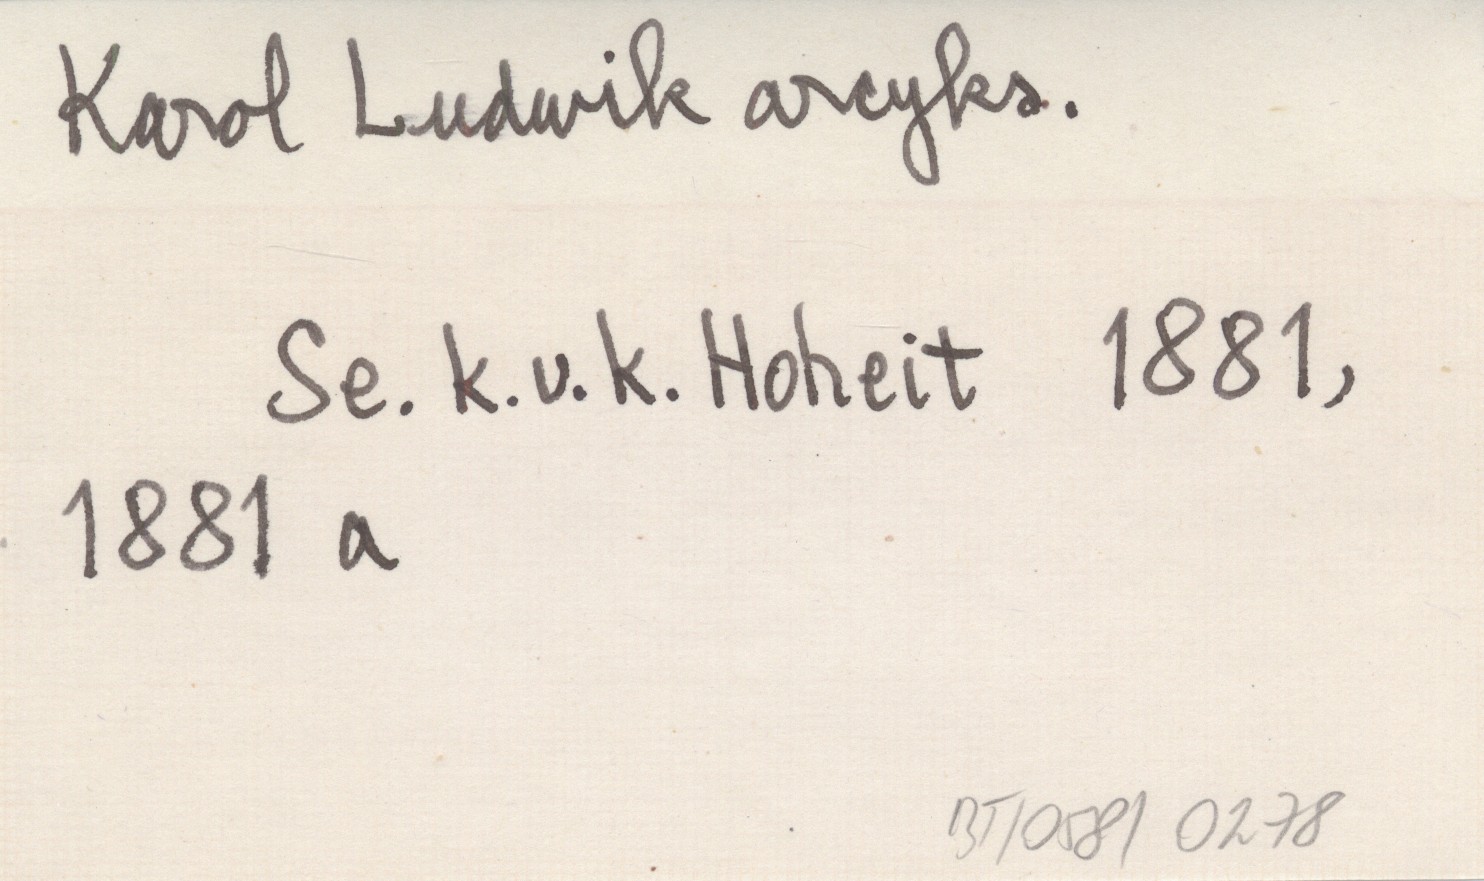 Karol Ludwik arcyks.
Se. k. v. k. Hoheit 1881,
1881 a
BT/0581 0278